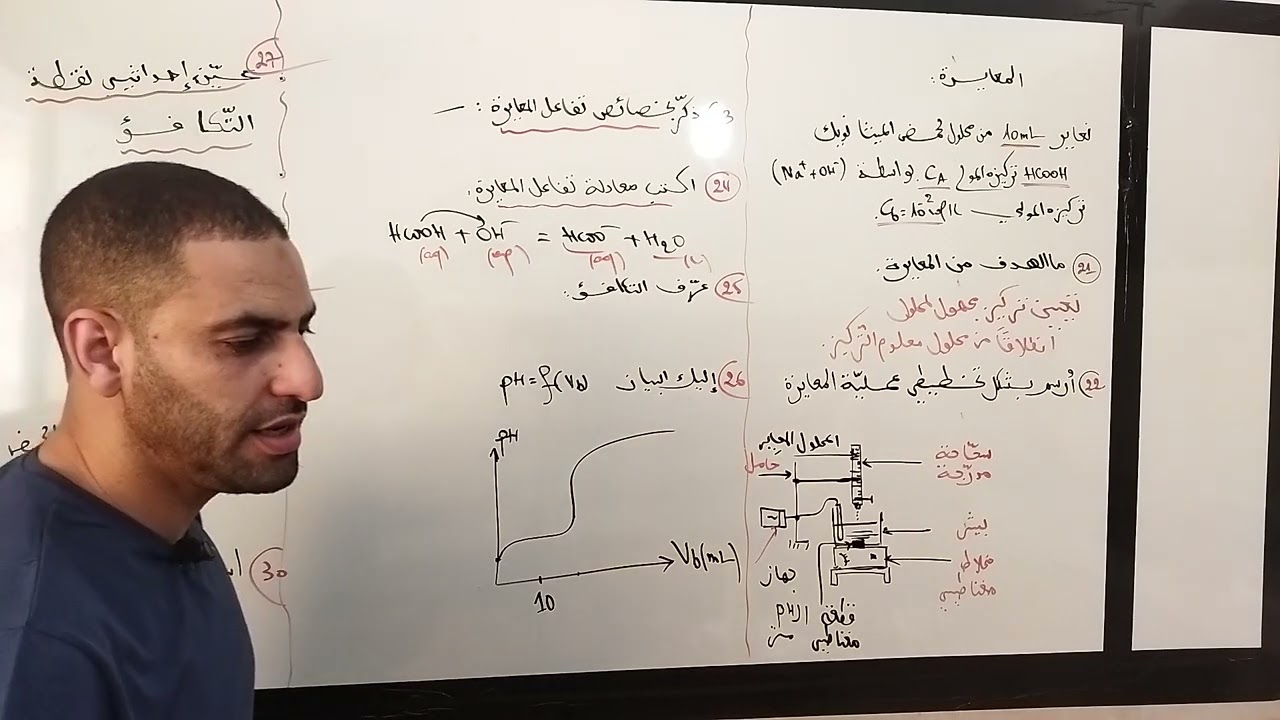 المعايرة:
نعاير 10mL من محلول لحمض الميثانويك
HCOOH تركيزه المولي CA بواسطة (Na⁺+OH⁻)
تركيزه المولي Cb=10⁻²mol/L.
21 ما الهدف من المعايرة.
تعيين تركيز مجهول لمحلول
انطلاقاً من محلول معلوم التركيز.
22 أرسم بشكل تخطيطي عمليّة المعايرة
المحلول المعاير
حامل
سحّاحة
مدرّجة
بيشر
مخلاط
مغناطيسي
جهاز
الـ pH
متر
قطعة
مغناطيس
ذكّر بخصائص تفاعل المعايرة:
24 اكتب معادلة تفاعل المعايرة.
HCOOH + OH⁻ = HCOO⁻ + H₂O
(aq) (aq) (aq) (l)
25 عرّف التكافؤ:
26 إليك البيان pH = f(Vb)
pH
Vb(mL)
10
27 عيّن إحداثيي نقطة
التّكافؤ
30